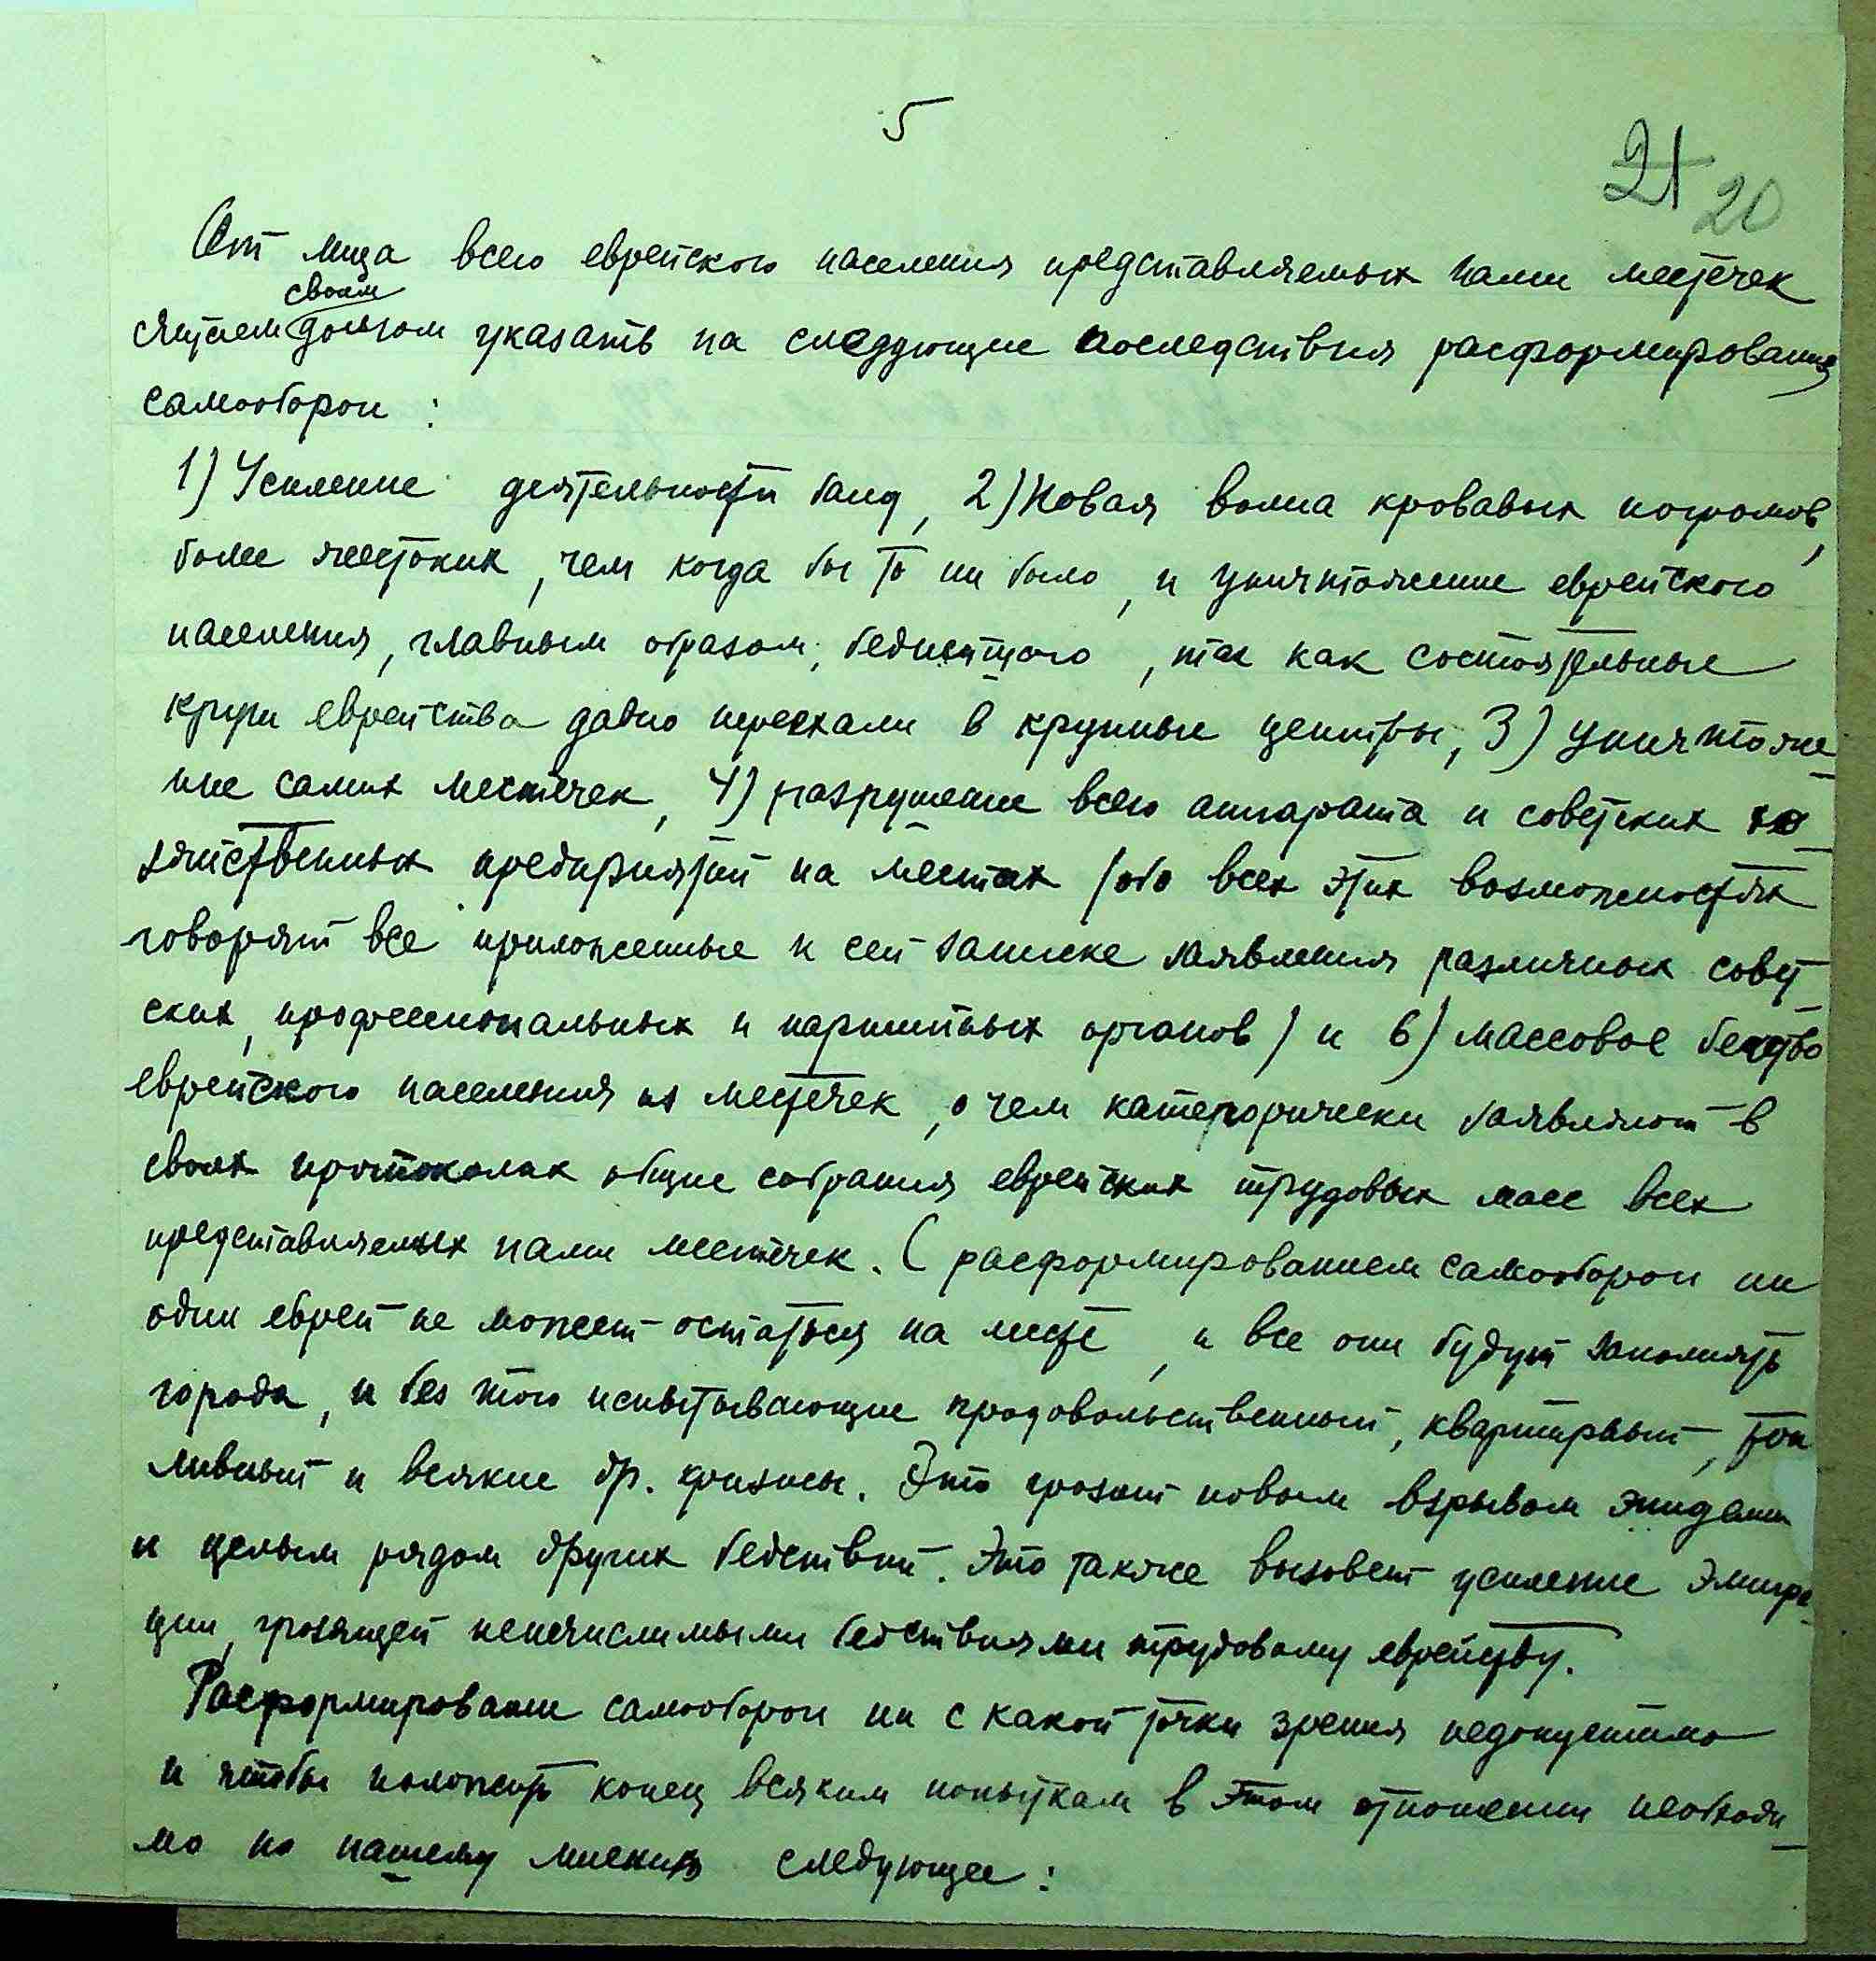 5
21 20
От лица всего еврейского населения представляемых нами местечек
своим
считаем долгом указать на следующие последствия расформирования
самооборон:
1) Усиление деятельности банд, 2) Новая волна кровавых погромов,
более жестоких, чем когда бы то ни было, и уничтожение еврейского
населения, главным образом, беднейшего, так как состоятельные
круги еврейства давно переехали в крупные центры, 3) уничтоже-
ние самих местечек, 4) разрушение всего аппарата и советских хо-
зяйственных предприятий на местах (обо всех этих возможностях
говорят все приложенные к сей записке заявления различных совет-
ских, профессиональных и партийных органов) и 6) массовое бегство
еврейского населения из местечек, о чем категорически заявляют в
своих протоколах общие собрания еврейских трудовых масс всех
представляемых нами местечек. С расформированием самооборон ни
один еврей не может остаться на месте, и все они будут заполнять
города, и без того испытывающие продовольственный, квартирный, топ
ливный и всякие др. кризисы. Это грозит новым взрывом эпидемии
и целым рядом других бедствий. Это также вызовет усиление эмигра-
ции, грозящей неисчислимыми бедствиями трудовому еврейству.
Расформирование самооборон ни с какой точки зрения недопустимо
и чтобы положить конец всяким попыткам в этом отношении необходи-
мо по нашему мнению следующее: